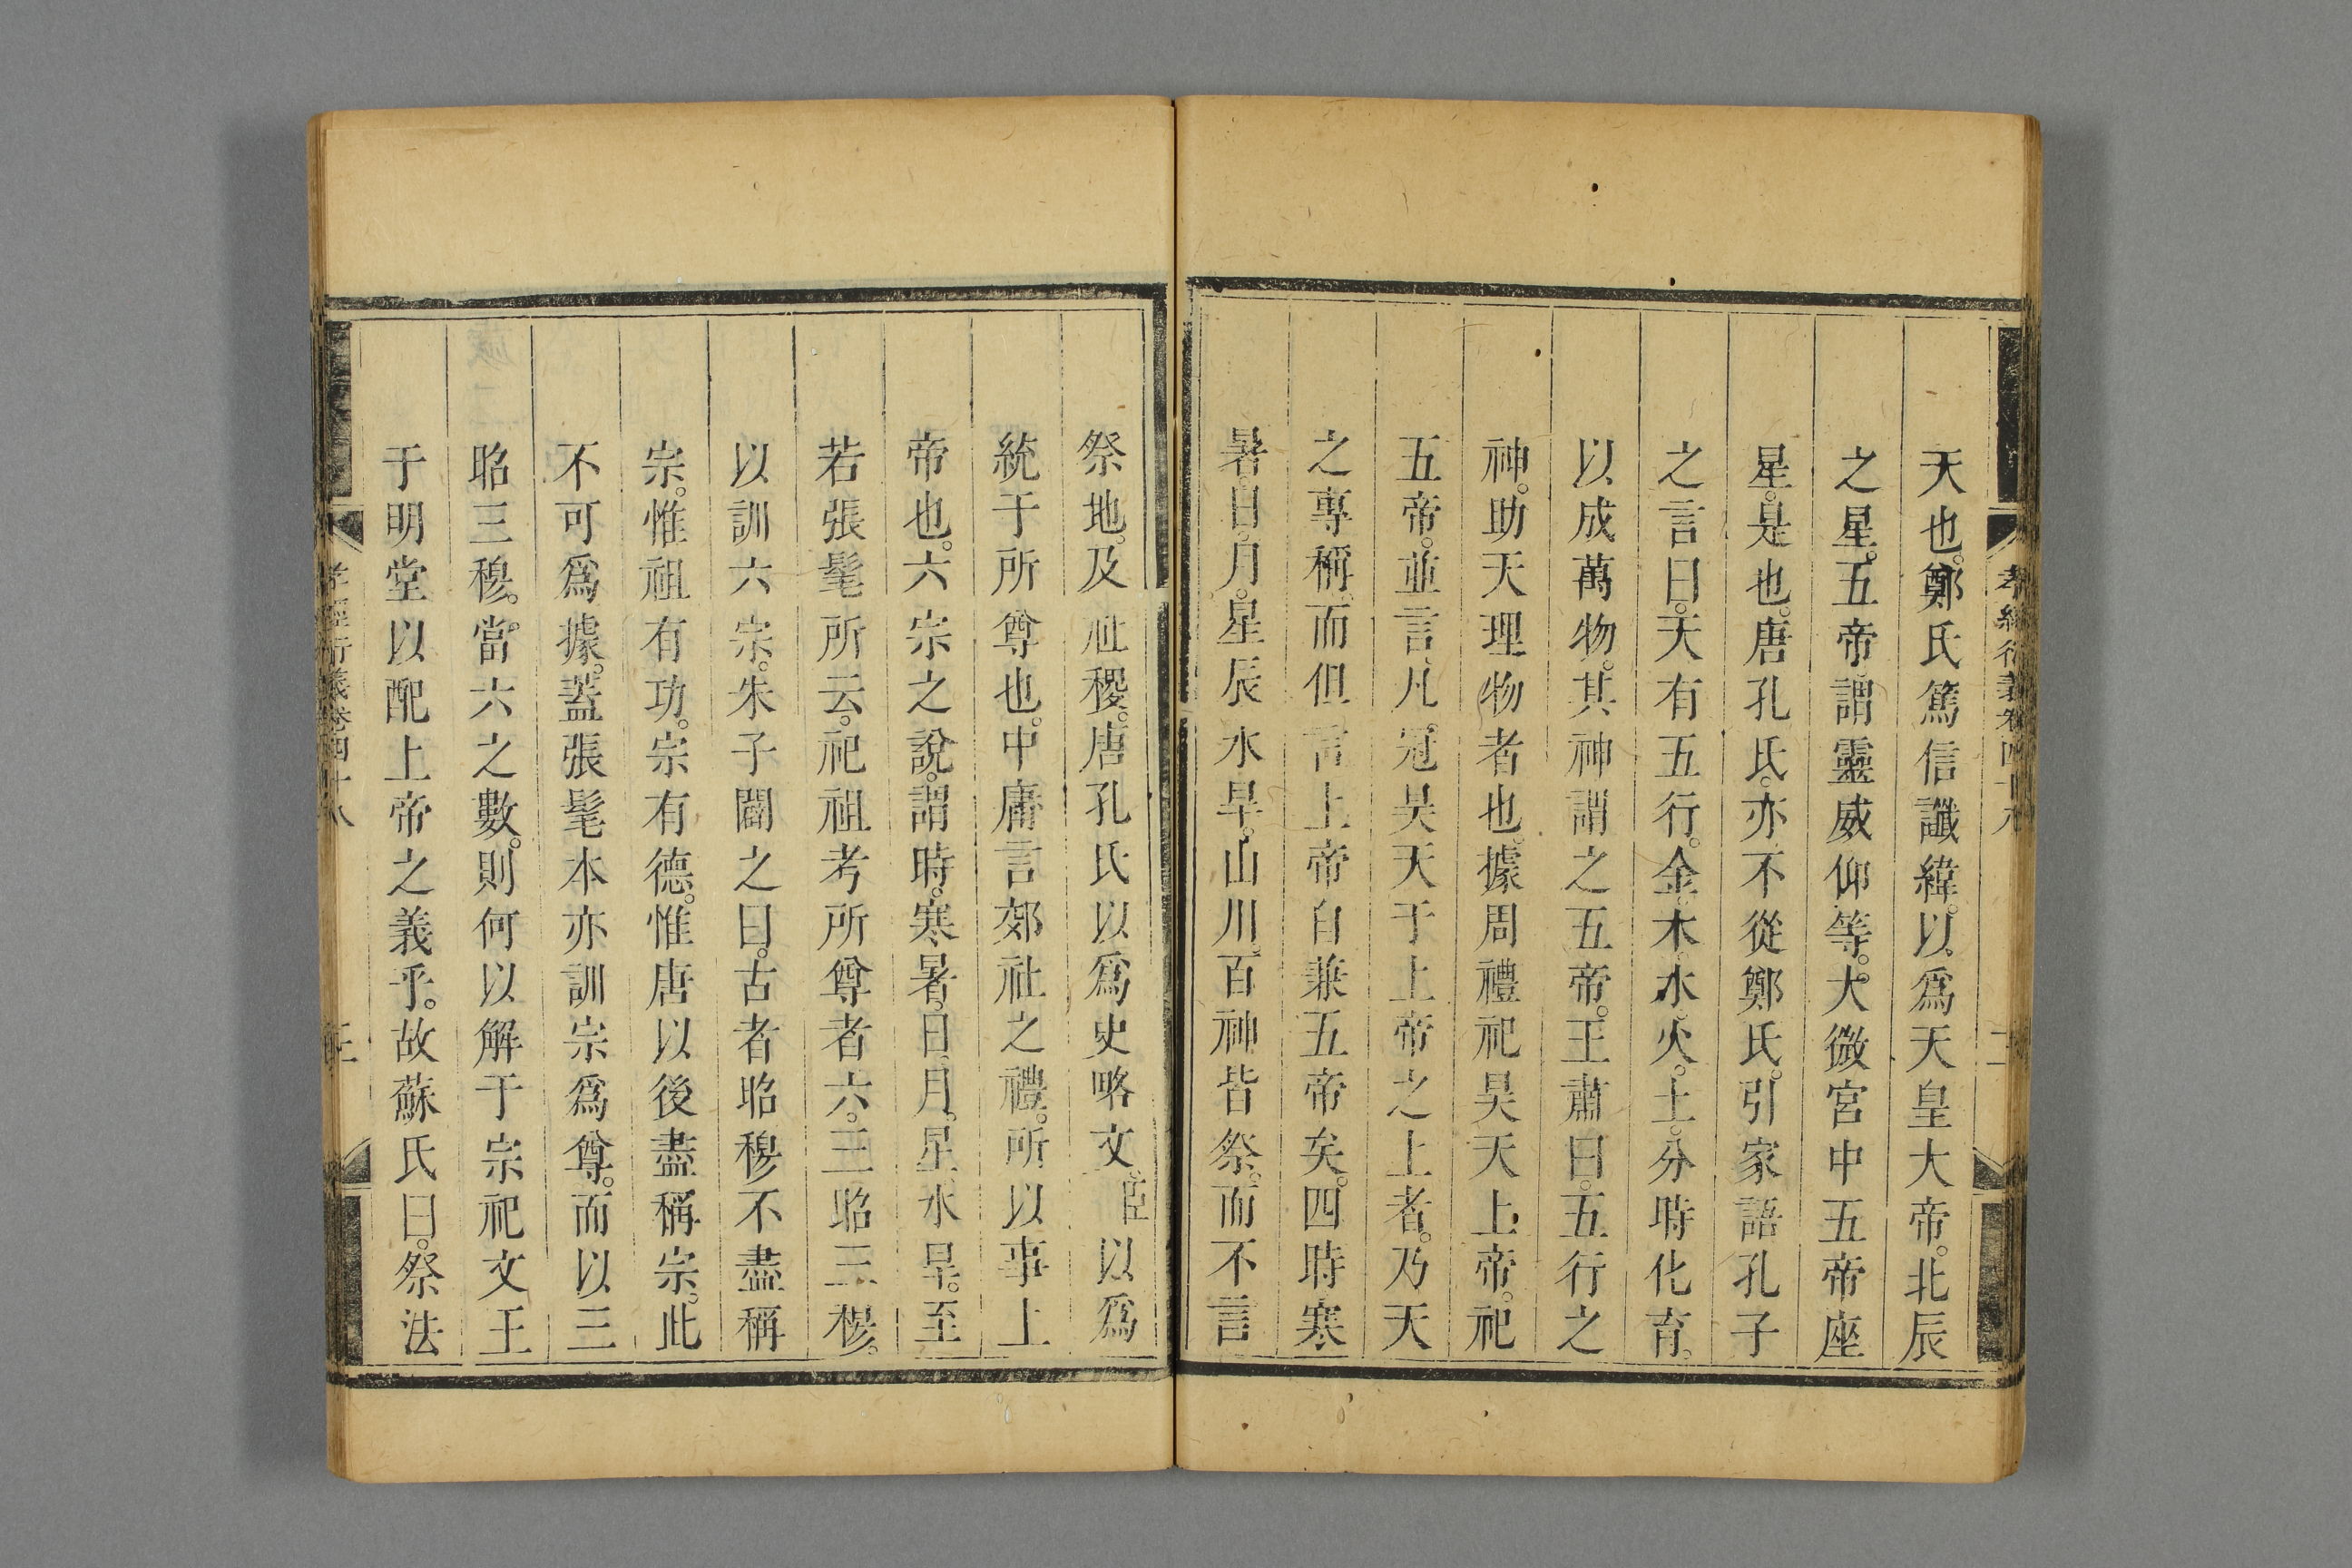 孝經衍義卷四十八
二
天也。鄭氏篤信讖緯。以爲天皇大帝。北辰
之星。五帝。謂靈威仰等。大微宮中五帝座
星。是也。唐孔氏。亦不從鄭氏。引家語孔子
之言曰。天有五行。金木水火。土。分時化育。
以成萬物。其神謂之五帝。王肅曰。五行之
神。助天理物者也。據周禮祀昊天上帝。祀
五帝。並言凡冠昊天于上帝之上者。乃天
之專稱。而但言上帝自兼五帝矣。四時寒
暑。日。月。星辰水旱。山川。百神皆祭。而不言
祭地。及社稷。唐孔氏以爲史略文。臣以爲
統于所尊也。中庸言郊社之禮。所以事上
帝也。六宗之說。謂時。寒暑。日。月。星。水旱。至
若張髦所云。祀祖考所尊者六。三昭三穆。
以訓六宗。朱子闢之曰。古者昭穆不盡稱
宗。惟祖有功。宗有德。惟唐以後盡稱宗。此
不可爲據。蓋張髦本亦訓宗爲尊。而以三
昭三穆。當六之數。則何以解于宗祀文王
于明堂以配上帝之義乎。故蘇氏曰。祭法
孝經衍義卷四十八
三